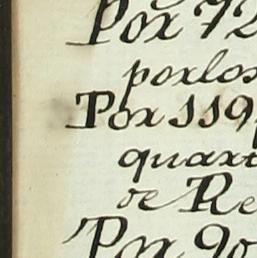 Por 72
porlos
Por 119
quart
de Re
Por 90